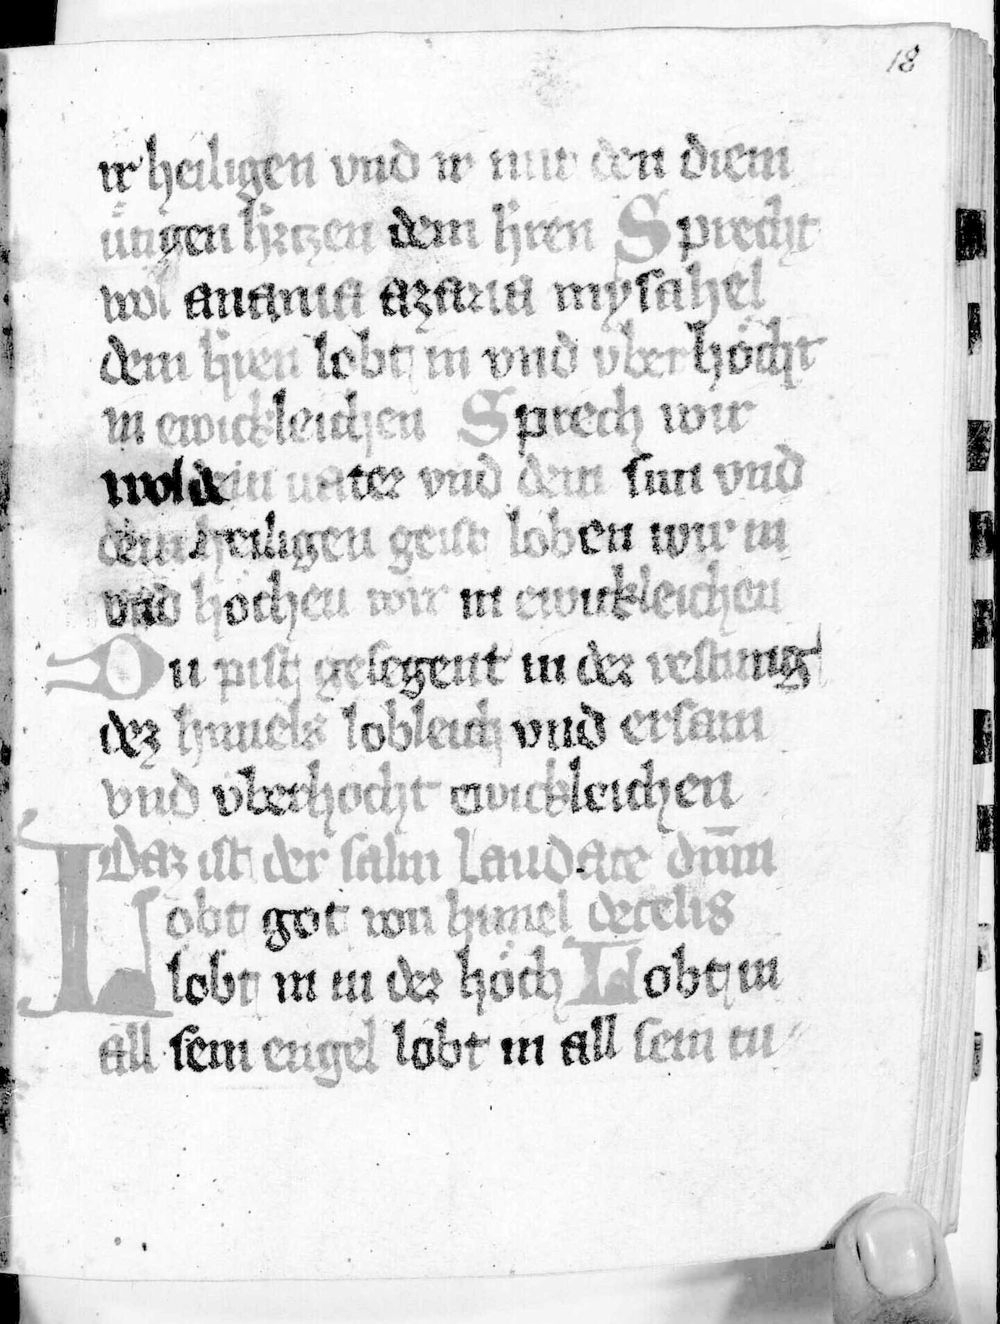 18
ir heiligen vnd ir mit den diem
ütigen hr̄tzen dem hr̄ren Sprecht
wol anania azaria mysahel
dem hr̄ren lobt in vnd vber höcht
in ewickleichen Sprech wir
wol dem vater vnd dem sun vnd
dem heiligen geist loben wir in
vnd höchen wir in ewickleichen
Du pist gesegent in der vestung
dez himels lobleich vnd ersam
vnd vberhöcht ewickleichen
Daz ist der salm Laudate dn̄m
Lobt got von himel de celis
lobt in in der höch Lobt in
all sein engel lobt in all sein tu